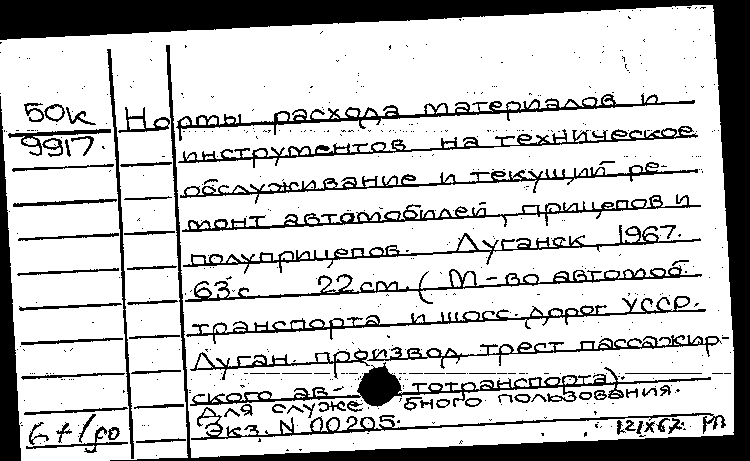 50к
9917.
Нормы расхода материалов и
инструментов на техническое
обслуживание и текущий ре-
монт автомобилей, прицепов и
полуприцепов. Луганск, 1967.
63 с 22 см. (М-во автомоб.
транспорта и шосс. дорог УССР.
Луган. производ трест пассажир-
ского ав- тотранспорта).
Для служе бного пользования.
Экз. N 00205.